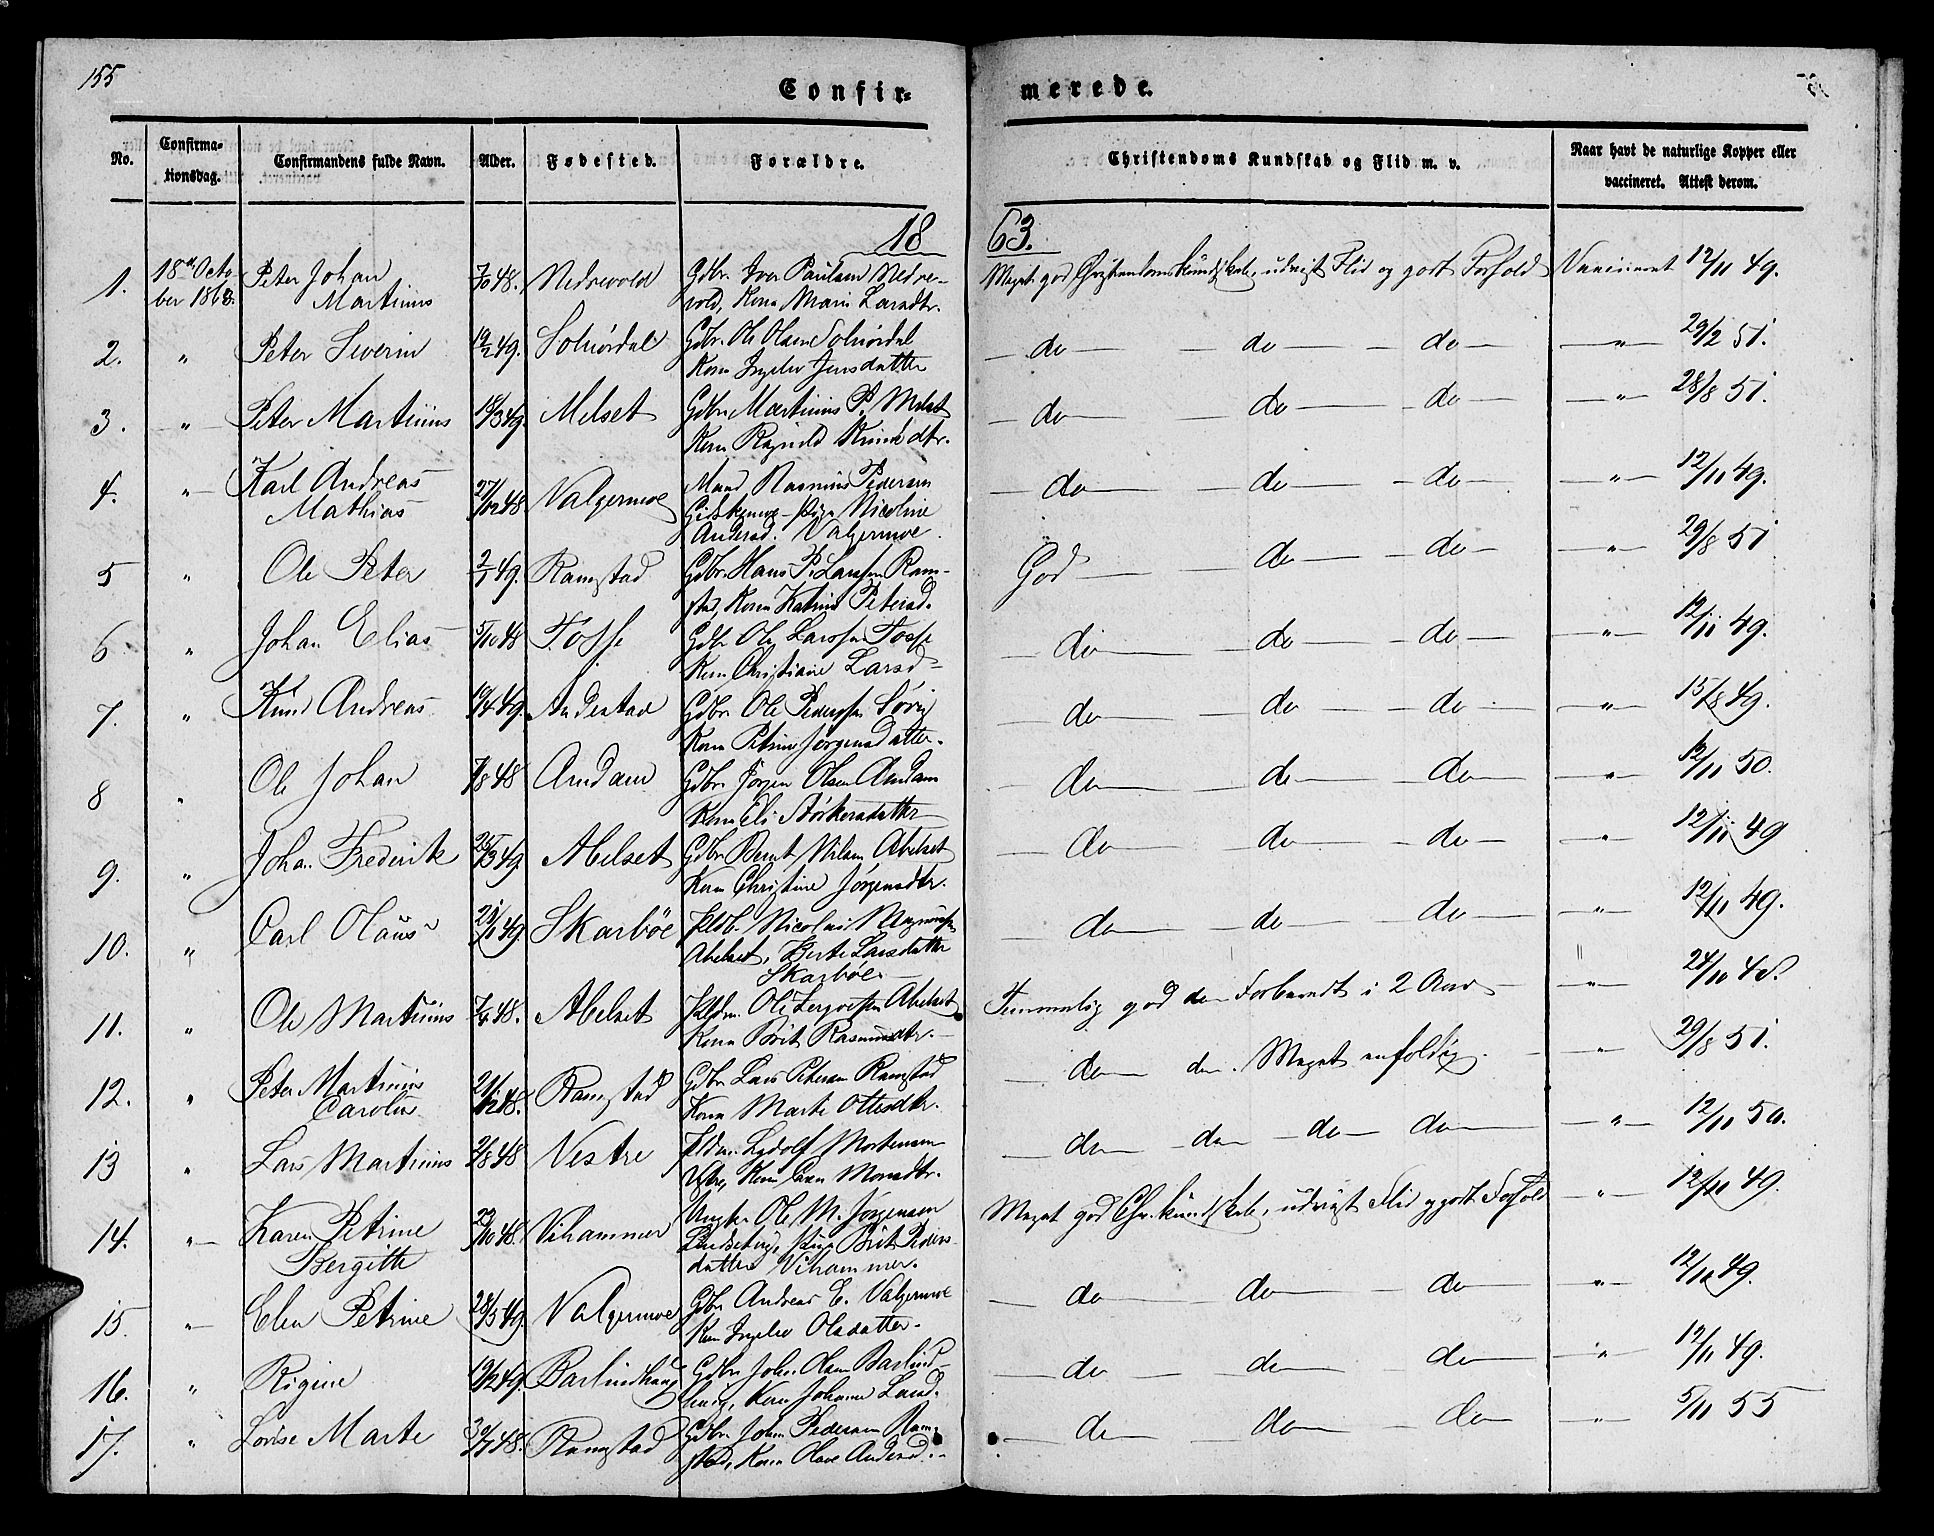 155
Confir= merede.
No. Confirma= tionsdag. Confirmandens fulde Navn. Alder. Fødested. Forældre. Christendoms Kundskab og Flid m. v. Naar havt de naturlige Kopper eller vaccineret. Attest derom.
18 63.
1. 18de Octo- Peter Johan 48. Nedrevold Gdbr. Iver Paulsen Nedre- Meget god Christendomskundskab, udvist Flid og godt Forhold Vaccineret 12/11 49.
ber 1863. Martinus vold, Kone Marie Larsdtr.
2. " Peter Severin 19/2 49. Solnørdal Gdbr. Ole Olsen Solnørdal — do — — do — — do — — " — 29/2 51.
Kone Ingelev Jensdatter
3. — " — Peter Martinus 18/3 49. Melset Gdbr. Martinus P. Melset — do — do — — do — — " — 28/8 51.
Kone Ragnild Knudsdtr.
4. " — Karl Andreas 27/12 48. Valgermoe Mand Rasmus Pedersen — do — — do — — do — — " — 12/11 49.
Mathias Gidskemoe — Pige Nicoline
Andersd. Valgermoe.
5 " Ole Peter 2/1 49. Ramstad Gdbr. Hans P. Larssen Ram- God — — do — — do — — " — 29/8 51
stad, Kone Katrine Petersd.
6 " Johan Elias 5/10 48 Fosse Gdbr Ole Larssen Fosse — do — — do — — do — — " — 12/11 49.
Kone Christiane Larsd
7. " Knud Andreas 19/4 49. Andestad Gdbr. Ole Pederssen — do — — do — — do — — " — 15/8 49.
Kone Petrine Jørgensdatter.
8 " Ole Johan 48 Amdam Gdbr. Jørgen Olsen Amdam — do — — do — — do — — " — 12/11 50.
Kone Eli Størkersdatter
9. " Johan Frederik 25/3 49. Abelset Gdbr. Bernt Nilsen Abelset — do — — do — — do — — " — 12/11 49
Kone Christine Jørgensdtr.
10. " Carl Olaus 49. Skarbøe Nicolai Magnussen — do — — do — — do — — " — 12/11 49.
Abelset, Berte Larsdatter
Skarbøe.
11. " Ole Martinus 7/4 48. Abelset Ole Abelset Temmelig god do Forberedt i 2 Aar — " — 24/10 48.
Kone Brit Rasmusdtr.
12. " Peter Martinus 21/12 48. Ramstad Gdbr Lars Petersen Ramstad — do — do. Meget enfoldig. — " — 29/8 51.
Carolus Kone Marte Ottesdtr.
13 " Lars Martinus 48 Vestre Lydolf Mortensen — do — do — do — do — — " — 12/11 50.
Kone Monsdtr.
14. " — Karen Petrine 29/10 48. Vihammer Ungkr. Ole M. Jørgensen Meget god Chr.kundskab, udvist Flid og godt Forhold — " — 12/11 49.
Bergitte Pige Brit Peders-
datter Vihammer.
15. " — Elen Petrine 28/5 49. Valgermoe Gdbr. Andreas E. Valgermoe — do — — do — — do — — " — 49.
Kone Ingelev Olsdatter.
16. " Regine 19/2 49. Barlindhaug Gdbr. John Olsen Barlind- — do — — do — — do — — " — 12/11 49.
haug, Kone Johanne Larsd.
17. " Lovise Marte 30/7 48. Ramstad Gdbr. John Pedersen Ram- — do — — do — — do — — " — 5/11 55
stad, Kone Olave Andersd.